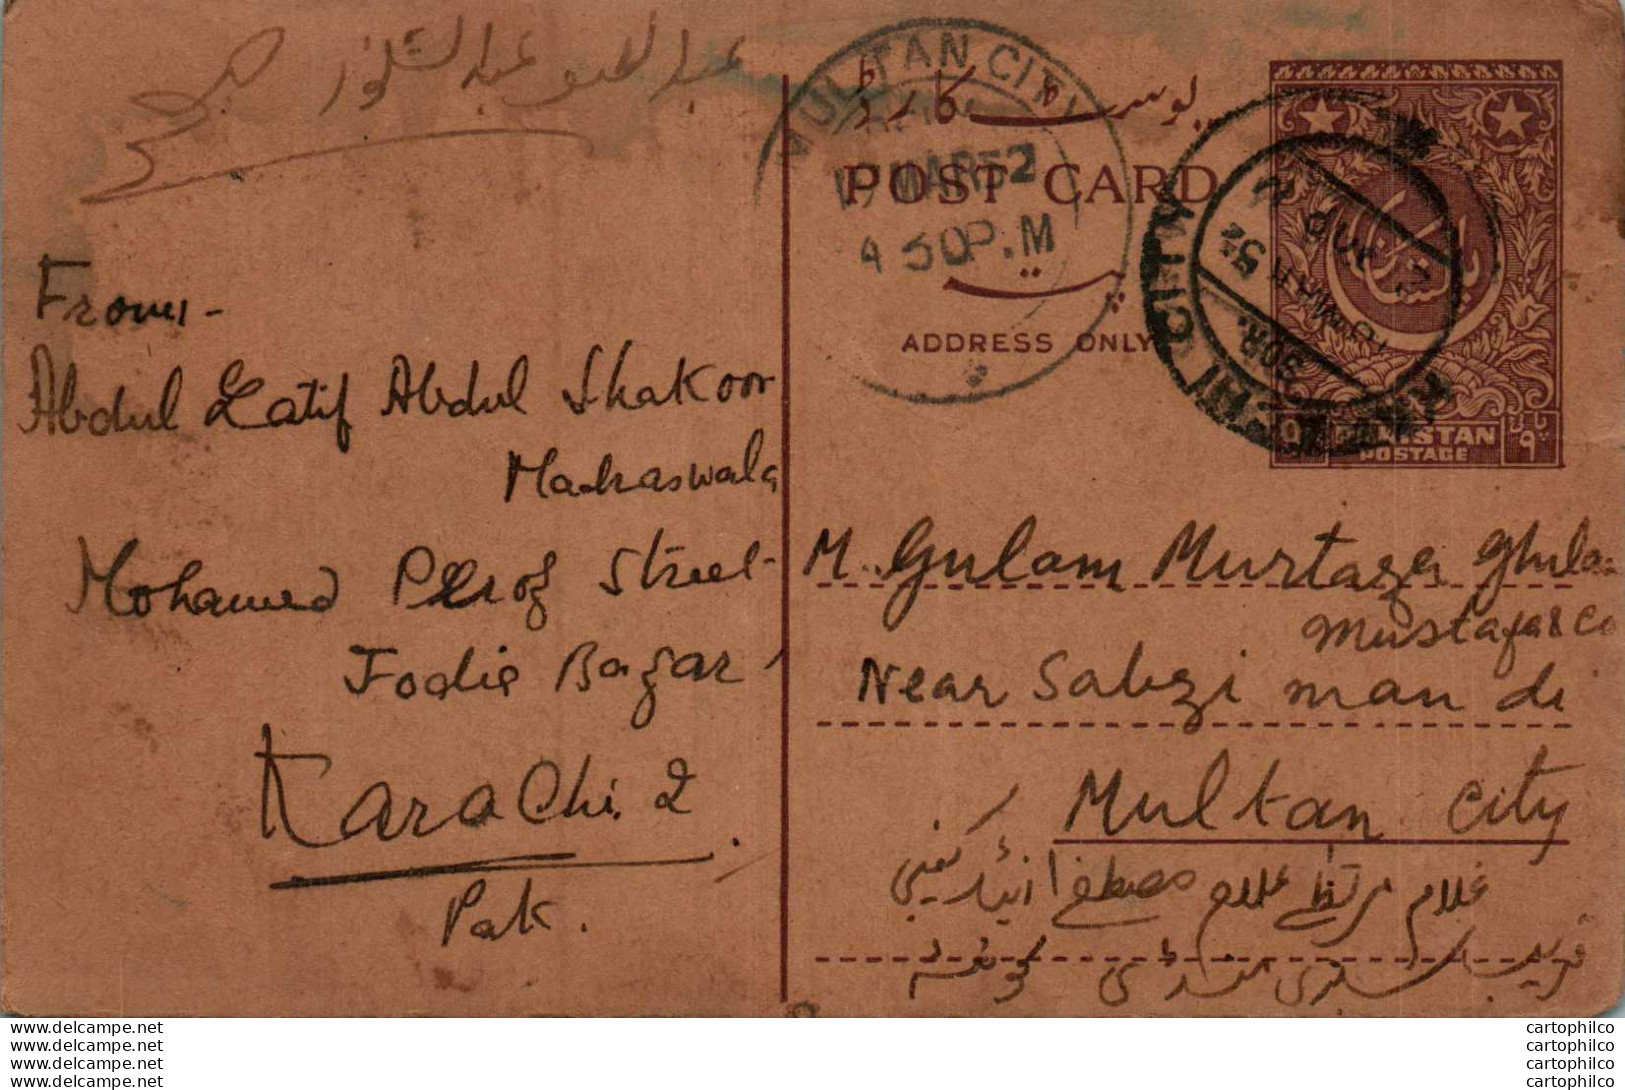 عبد اللطیف عبد الشکور
پوسٹ کارڈ
MULTAN CITY
MAR 52
4 30 P.M
POST CARD
پتہ
ADDRESS ONLY
KARACHI CITY
پاکستان
9 PAKISTAN ۹ پائی
POSTAGE
From -
Abdul Latif Abdul Shakoor
Madraswala
Mohamed Street
Jodia Bazar
Karachi. 2
Pak.
M. Gulam Murtaza Ghulam
Mustafa & Co
Near Sabzi mandi
Multan City
غلام مرتضیٰ غلام مصطفیٰ اینڈ کمپنی
قریب سبزی منڈی
www.delcampe.net
www.delcampe.net
www.delcampe.net
www.delcampe.net
cartophilco
cartophilco
cartophilco
cartophilco